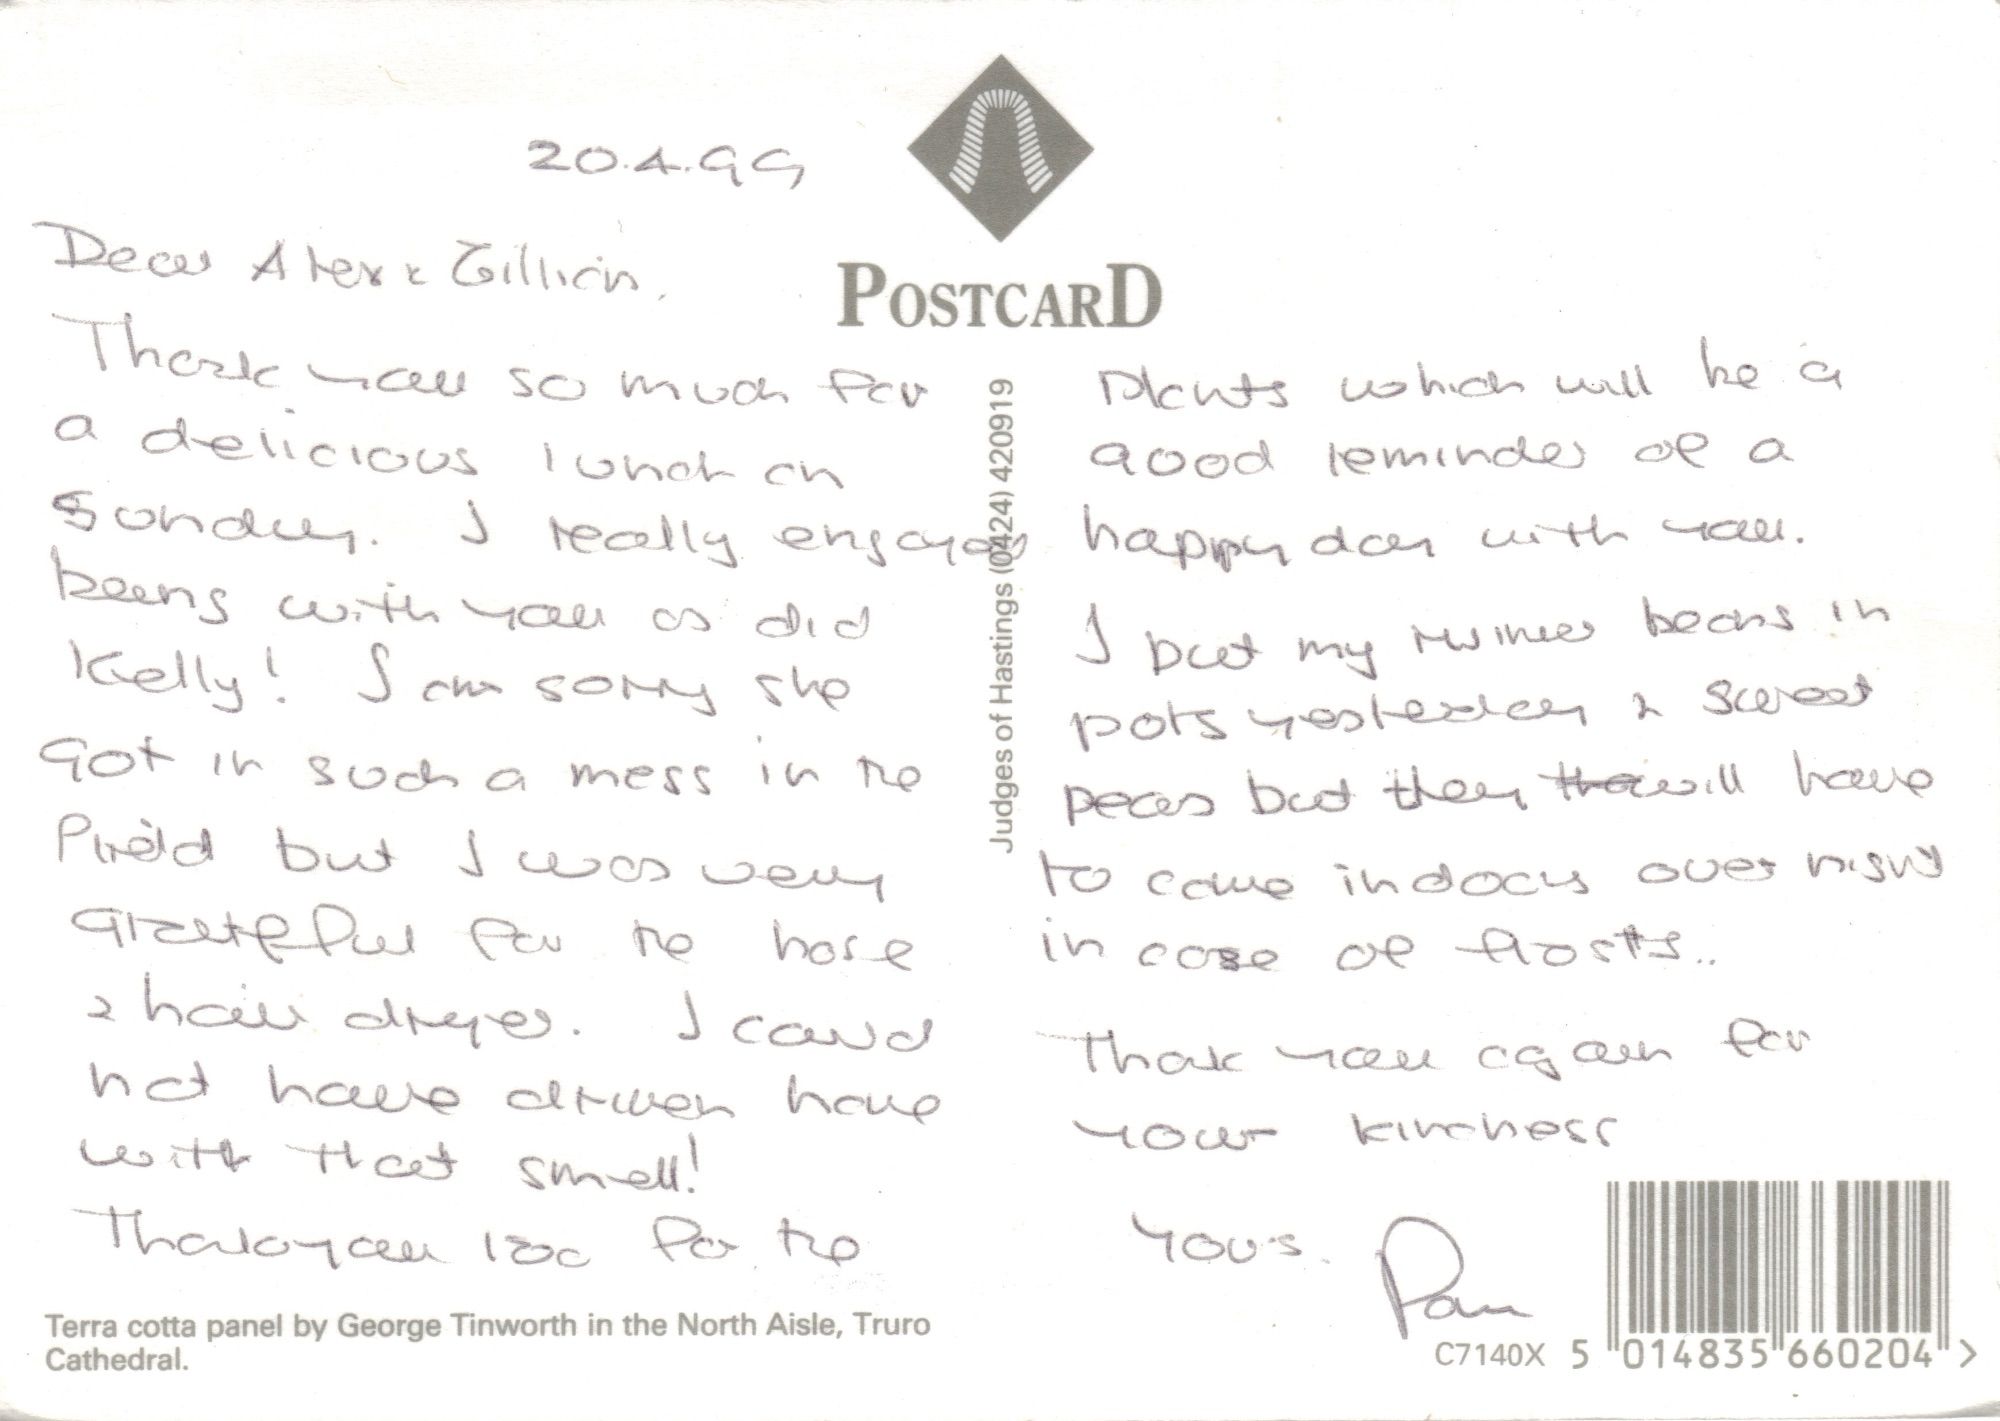 20.4.99
Dear Alex & Gillian,
Thank you so much for
a delicious lunch on
Sunday. I really enjoyed
being with you as did
Kelly! I am sorry she
got in such a mess in the
field but I was very
grateful for the hose
& hair dryer. I could
not have driven home
with that smell!
Thank you too for the
POSTCARD
Judges of Hastings (0424) 420919
plants which will be a
good reminder of a
happy day with you.
I put my runner beans in
pots yesterday & sweet
peas but they will have
to come indoors over night
in case of frosts..
Thank you again for
your kindness
Yours.
Pam
Terra cotta panel by George Tinworth in the North Aisle, Truro
Cathedral.
C7140X 5 014835 660204 >